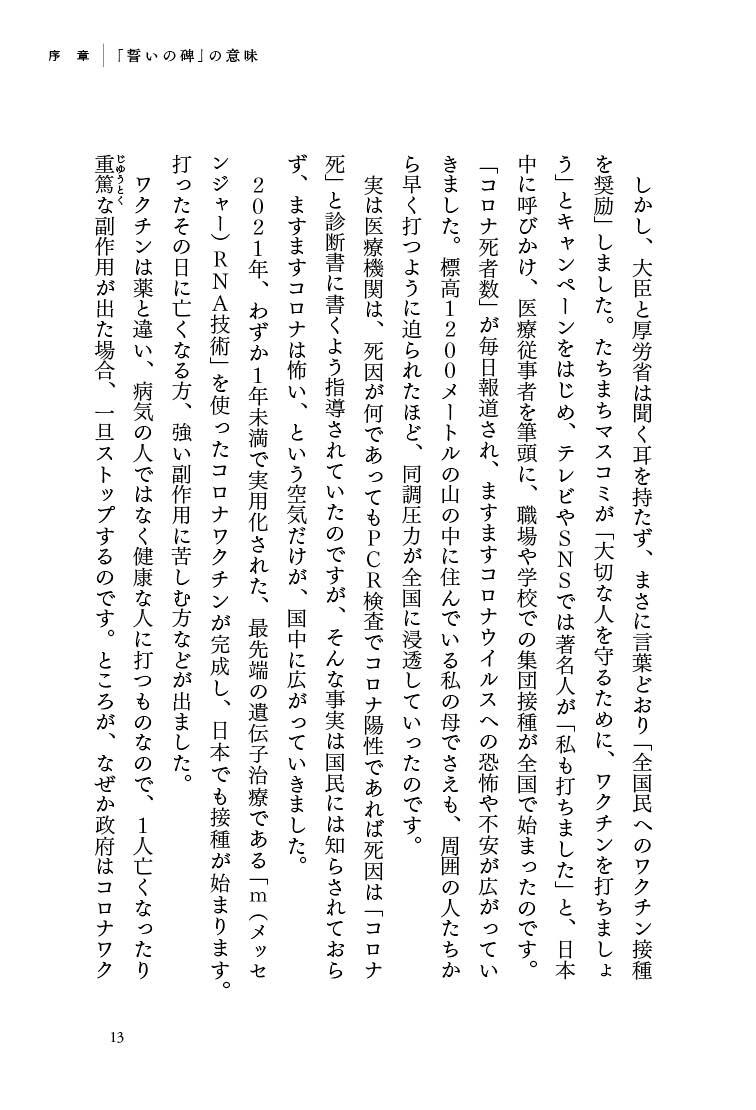 序章 「誓いの碑」の意味
しかし、大臣と厚労省は聞く耳を持たず、まさに言葉どおり「全国民へのワクチン接種
を奨励」しました。たちまちマスコミが「大切な人を守るために、ワクチンを打ちましょ
う」とキャンペーンをはじめ、テレビやSNSでは著名人が「私も打ちました」と、日本
中に呼びかけ、医療従事者を筆頭に、職場や学校での集団接種が全国で始まったのです。
「コロナ死者数」が毎日報道され、ますますコロナウイルスへの恐怖や不安が広がってい
きました。標高1200メートルの山の中に住んでいる私の母でさえも、周囲の人たちか
ら早く打つように迫られたほど、同調圧力が全国に浸透していったのです。
実は医療機関は、死因が何であってもPCR検査でコロナ陽性であれば死因は「コロナ
死」と診断書に書くよう指導されていたのですが、そんな事実は国民には知らされておら
ず、ますますコロナは怖い、という空気だけが、国中に広がっていきました。
2021年、わずか1年未満で実用化された、最先端の遺伝子治療である「m(メッセ
ンジャー)RNA技術」を使ったコロナワクチンが完成し、日本でも接種が始まります。
打ったその日に亡くなる方、強い副作用に苦しむ方などが出ました。
ワクチンは薬と違い、病気の人ではなく健康な人に打つものなので、1人亡くなったり
重篤な副作用が出た場合、一旦ストップするのです。ところが、なぜか政府はコロナワク
じゆうとく
13